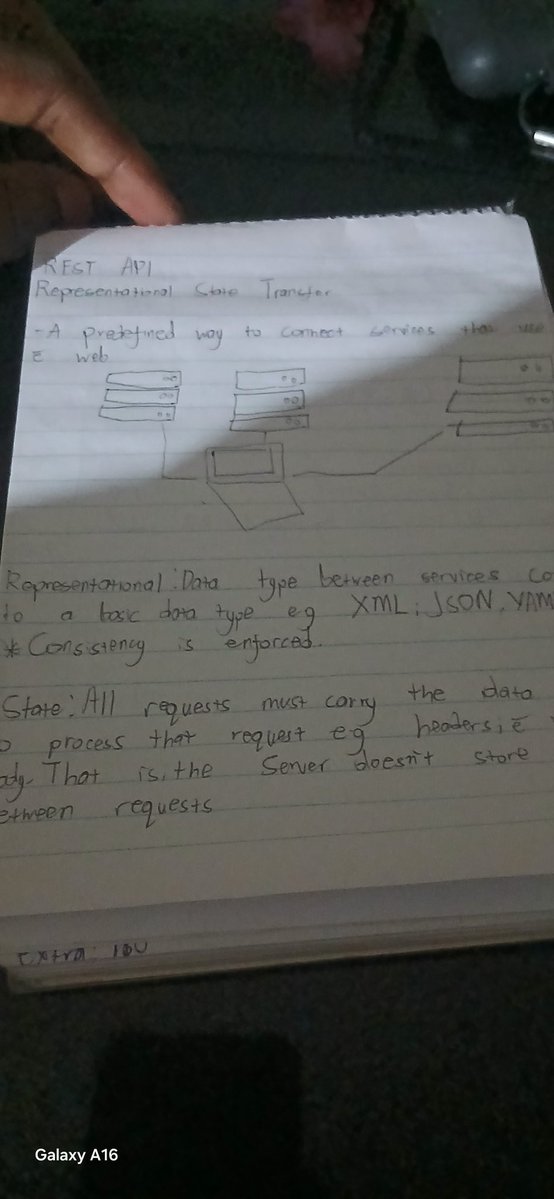 REST API
Representational State Transfer
- A predefined way to connect services that use
ē web
Representational: Data type between services co
to a basic data type eg XML, JSON, YAM
* Consistency is enforced.
State: All requests must carry the data
o process that request eg headers, ē
ody. That is, the Server doesn't store
etween requests
Extra:
Galaxy A16